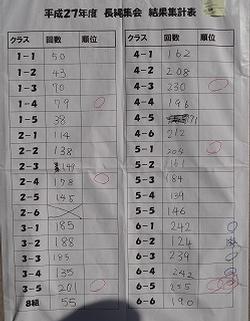 平成27年度 長縄集会 結果集計表
クラス 回数 順位 クラス 回数 順位
1-1 50 4-1 162
1-2 43 4-2 208
1-3 70 4-3 230
1-4 79 4-4 196
1-5 38 4-5 171
2-1 114 4-6 212
2-2 138 5-1 204
2-3 149 5-2 161
2-4 178 5-3 184
2-5 145 5-4 139
2-6 5-5 146
3-1 185 6-1 242
3-2 188 6-2 124
3-3 185 6-3 239
3-4 135 6-4 242
3-5 201 6-5 255
8組 55 6-6 190